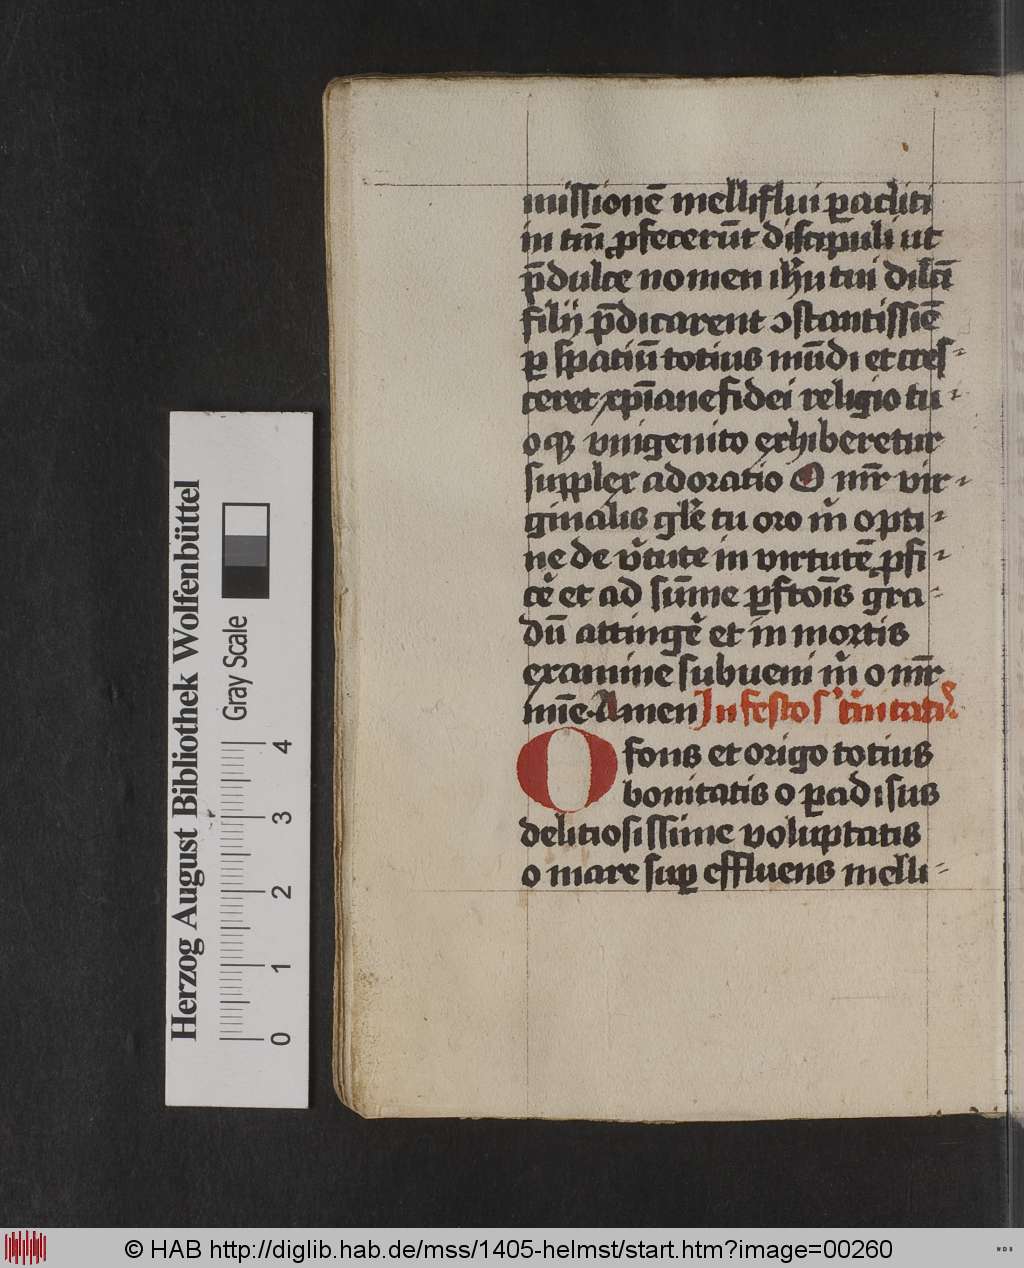 missionē melliflui ꝑacliti
in tm̄ ꝓfecerūt discipuli ut
p̄dulce nomen ihu tui dilcī
filij p̄dicarent ↄstantissiē
ꝑ spatiū totius mūdi et cres-
ceret xp̄iane fidei religio tu-
oꝙ vnigenito exhiberetur
supplex adoratio O mr̄ vir-
ginalis gle tu oro m̄ opti-
ne de vtute in virtutē ꝓfi-
ce et ad sūme ꝑftōis gra-
dū attinge et in mortis
examine subueni m̄ o mr̄
mīe. Amen In festo s trinitatis
O fons et origo totius
bonitatis o ꝑadisus
delitiosissime voluptatis
o mare suꝑ effluens melli-
Herzog August Bibliothek Wolfenbüttel
Gray Scale
0 1 2 3 4
© HAB http://diglib.hab.de/mss/1405-helmst/start.htm?image=00260